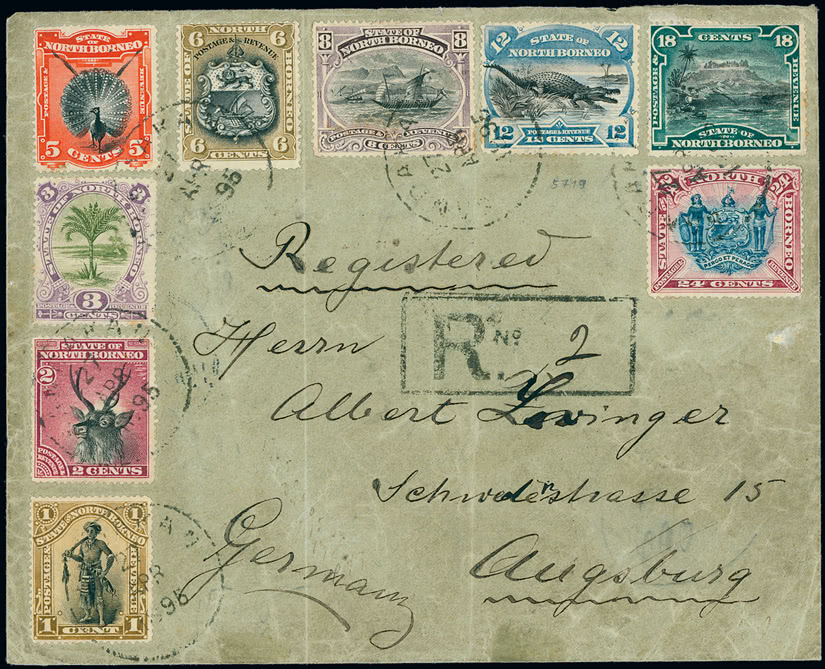 STATE OF
NORTH BORNEO
POSTAGE &
REVENUE
5 CENTS 5
6 NORTH 6
POSTAGE & REVENUE
STATE OF
BORNEO
6 CENTS 6
8 STATE OF NORTH BORNEO 8
POSTAGE & REVENUE
8 CENTS
12 STATE OF NORTH BORNEO 12
POSTAGE & REVENUE
12 12 CENTS 12
18 CENTS 18
POSTAGE &
REVENUE
STATE OF
NORTH BORNEO
27
APR
95
5719
3 STATE OF NORTH BORNEO 3
3
CENTS
STATE OF NORTH BORNEO
PERGO ET PERAGO
24 CENTS
Registered
R. No. 2
Herrn
Albert
Schwalestrasse 15
Augsburg
Germany
2 STATE OF
NORTH BORNEO
POSTAGE &
REVENUE
2 CENTS
27
APR
95
1 STATE OF NORTH BORNEO 1
POSTAGE &
REVENUE
1 CENT 1